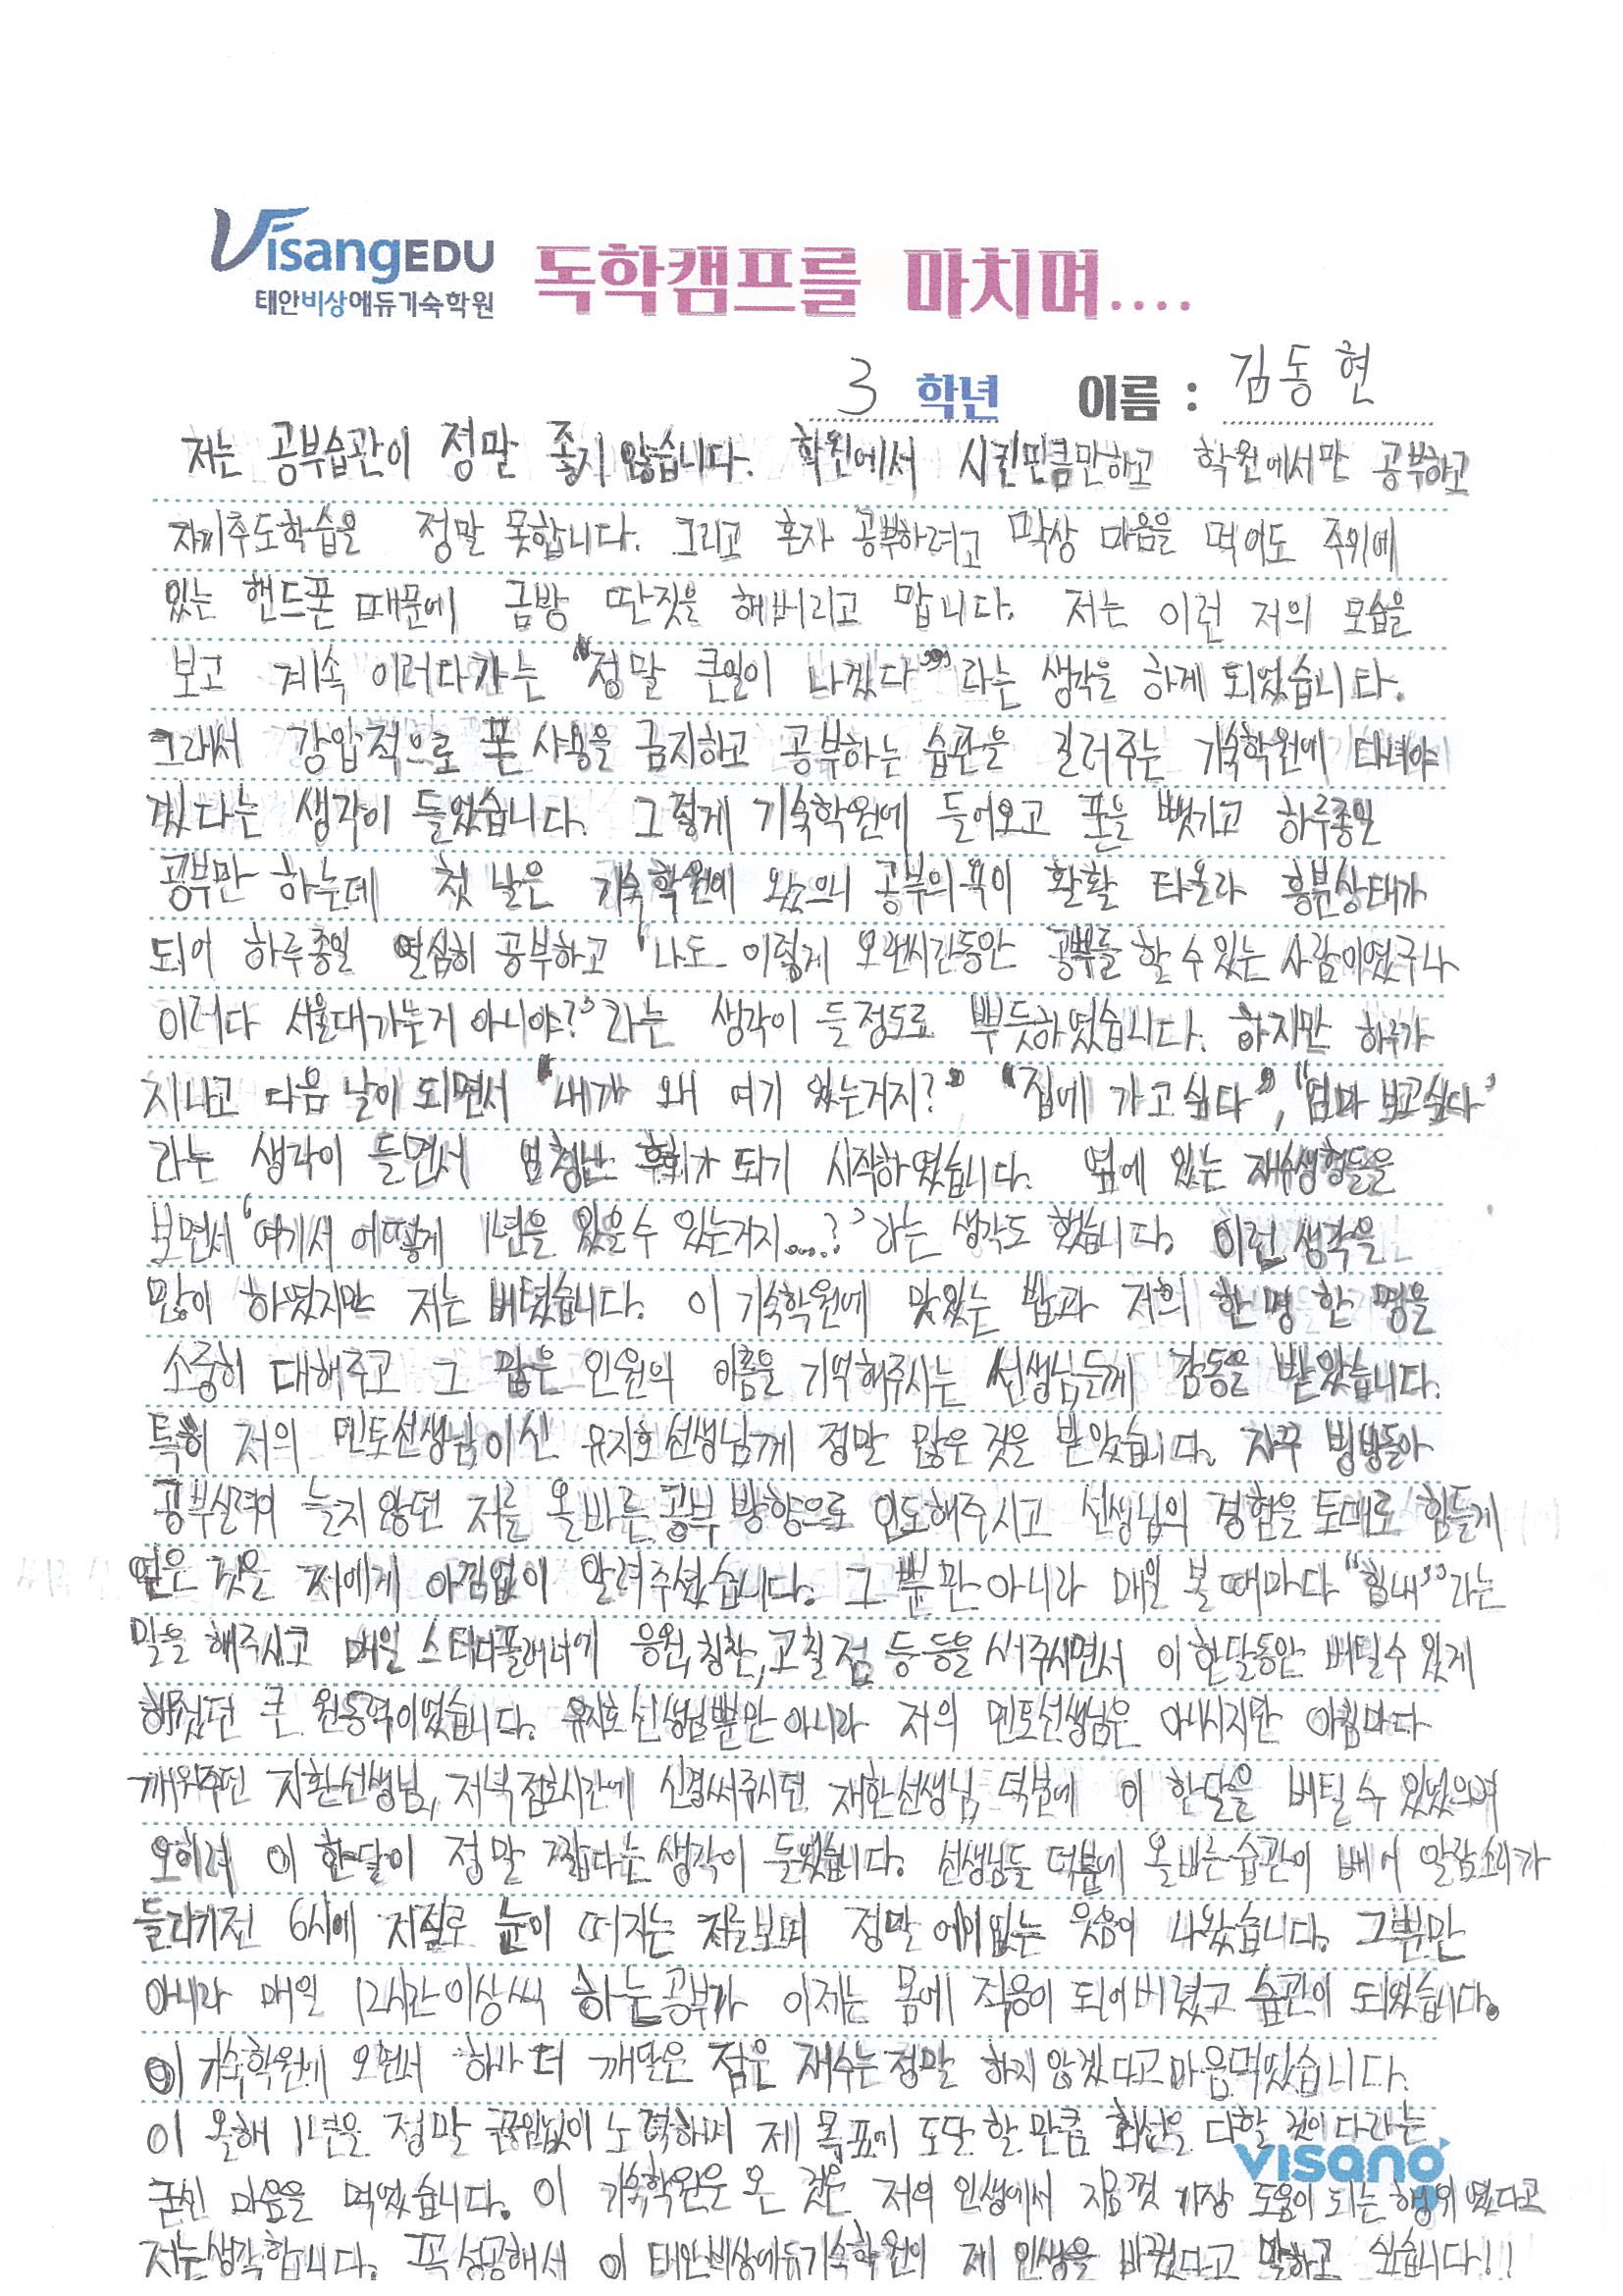 VisangEDU
태안비상에듀기숙학원
독학캠프를 마치며....
3 학년 이름 : 김동현
저는 공부습관이 정말 좋지 않습니다. 학원에서 시킨만큼만하고 학원에서만 공부하고
자기주도학습을 정말 못합니다. 그리고 혼자 공부하려고 막상 마음을 먹어도 주위에
있는 핸드폰 때문에 금방 딴짓을 해버리고 맙니다. 저는 이런 저의 모습을
보고 계속 이러다가는 "정말 큰일이 나겠다"라는 생각을 하게 되었습니다.
그래서 강압적으로 폰 사용을 금지하고 공부하는 습관을 길러주는 기숙학원에 다녀야
겠다는 생각이 들었습니다. 그렇게 기숙학원에 들어오고 폰을 뺏기고 하루종일
공부만 하는데 첫 날은 기숙학원에 왔으니 공부의욕이 활활 타올라 흥분상태가
되어 하루종일 열심히 공부하고 '나도 이렇게 오랜시간동안 공부를 할 수 있는 사람이였구나
이러다 서울대가는거 아니야?'라는 생각이 들정도로 뿌듯하였습니다. 하지만 하루가
지나고 다음 날이 되면서 "내가 왜 여기 있는거지?" "집에 가고싶다", "엄마 보고싶다'
라는 생각이 들면서 엄청난 후회가 되기 시작하였습니다. 옆에 있는 재수생형들을
보면서 '여기서 어떻게 1년을 있을수 있는거지...?'라는 생각도 했습니다. 이런 생각을
많이 하였지만 저는 버텼습니다. 이 기숙학원에 맛있는 밥과 저희 한 명 한 명을
소중히 대해주고 그 많은 인원의 이름을 기억해주시는 선생님들께 감동을 받았습니다.
특히 저의 멘토선생님이신 유지호선생님께 정말 많은 것을 받았습니다. 자꾸 빙빙돌아
공부실력이 늘지않던 저를 올바른 공부 방향으로 인도해주시고 선생님의 경험을 토대로 힘들게
얻은 것을 저에게 아낌없이 알려주셨습니다. 그 뿐만아니라 매일 볼 때마다 "힘내"라는
말을 해주시고 매일 스터디플래너에 응원, 칭찬, 고칠점 등등을 써주시면서 이한달동안 버틸수 있게
해줬던 큰 원동력이였습니다. 유지호선생님뿐만 아니라 저의 멘토선생님은 아니시지만 아침마다
깨워주던 지환선생님, 저녁점호시간에 신경써주시던 재환선생님 덕분에 이 한달을 버틸 수 있었으며
오히려 이 한달이 정말 짧다는 생각이 들었습니다. 선생님들 덕분에 올바른 습관이 베어 알람소리가
들리기전 6시에 저절로 눈이 떠지는 저를보며 정말 어이없는 웃음이 나왔습니다. 그뿐만
아니라 매일 12시간이상씩 하는 공부가 이제는 몸에 적응이 되어버렸고 습관이 되었습니다.
이 기숙학원에 오면서 하나 더 깨달은 점은 재수는 정말 하지 않겠다고마음먹었습니다.
이 올해 1년을 정말 끊임없이 노력하며 제 목표에 도달 할 만큼 최선을 다할 것이다라는
굳센 마음을 먹었습니다. 이 기숙학원을 온 것은 저의 인생에서 지금껏 가장 도움이 되는 행위였다고
저는생각합니다. 꼭성공해서 이 태안비상에듀기숙학원이 제 인생을 바꿨다고 말하고 싶습니다!!
visang